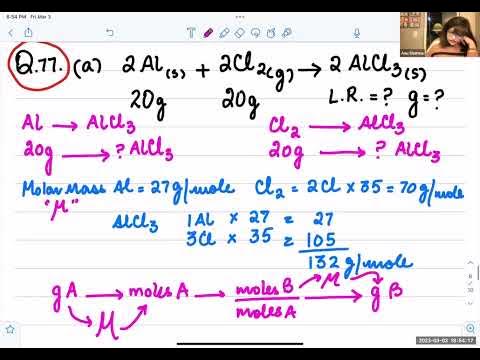 8:54 PM Fri Mar 3
Q.77. (a) 2Al(s) + 2Cl2(g) → 2AlCl3(s)
20g 20g L.R. = ? g = ?
Al → AlCl3 Cl2 → AlCl3
20g → ? AlCl3 20g → ? AlCl3
Molar Mass Al = 27g/mole Cl2 = 2Cl x 35 = 70g/mole
"M"
AlCl3 1Al x 27 = 27
3Cl x 35 = 105
132 g/mole
g A → moles A → moles B / moles A → g B
M M
2023-03-03 18:54:17